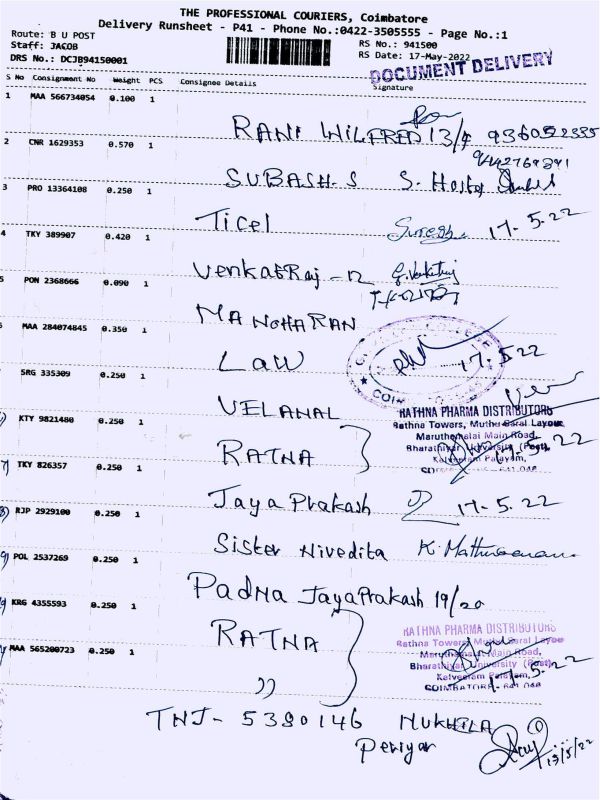 THE PROFESSIONAL COURIERS, Coimbatore
Delivery Runsheet - P41 - Phone No.:0422-3505555 - Page No.:1
Route: B U POST
Staff: JACOB
DRS No.: DCJB94150001
RS No.: 941500
RS Date: 17-May-2022
DOCUMENT DELIVERY
S No Consignment No Weight PCS Consignee Details Signature
1 MAA 566734054 0.100 1
RANI WILFRED 13/4 9360522335
2 CNR 1629353 0.570 1
9442769391
SUBASH.S S.
3 PRO 13364108 0.250 1
Ticel Suresh 17-5.22
4 TKY 389907 0.420 1
VenkatRaj - R G.Venkatraj
5 PON 2368666 0.090 1
MANOHARAN
MAA 284074845 0.350 1
LAW 17.5.22
SRG 335309 0.250 1
VELANAL
RATHNA PHARMA DISTRIBUTORS
Rathna Towers, Muthu Saral Layout
Maruthamalai Main Road,
Bharathiyar University (Post),
Kalveeram Palayam,
COIMBATORE - 641 046
KTY 9821480 0.250 1
RATNA
TKY 826357 0.250 1
Jaya Prakash 17-5.22
RJP 2929100 0.250 1
Sister Nivedita
9) POL 2537269 0.250 1
Padna JayaPrakash 19/20
KRG 4355593 0.250 1
RATNA
RATHNA PHARMA DISTRIBUTORS
Rathna Towers, Muthu Saral Layout
Maruthamalai Main Road,
Bharathiyar University (Post),
Kalveeram Palayam,
COIMBATORE - 641 046
17.5.22
MAA 565200723 0.250 1
"
TNJ - 5380146 MUKHILA
Periyar